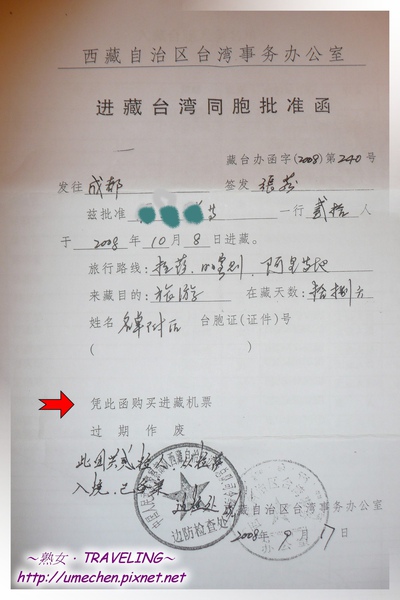 西藏自治区台湾事务办公室
进藏台湾同胞批准函
藏台办函字(2008)第240号
发往 成都 签发
兹批准 等 一行 贰拾 人
于 2008 年 10 月 8 日进藏。
旅行路线: 拉萨、日喀则、阿里等地
来藏目的: 旅游 在藏天数: 拾捌天
姓名 名单附后 台胞证(证件)号
( )
凭此函购买进藏机票
过期作废
入境,已
边防检查处
西藏自治区台湾事务办公室
2008年9月17日
~熟女·TRAVELING~
http://umechen.pixnet.net